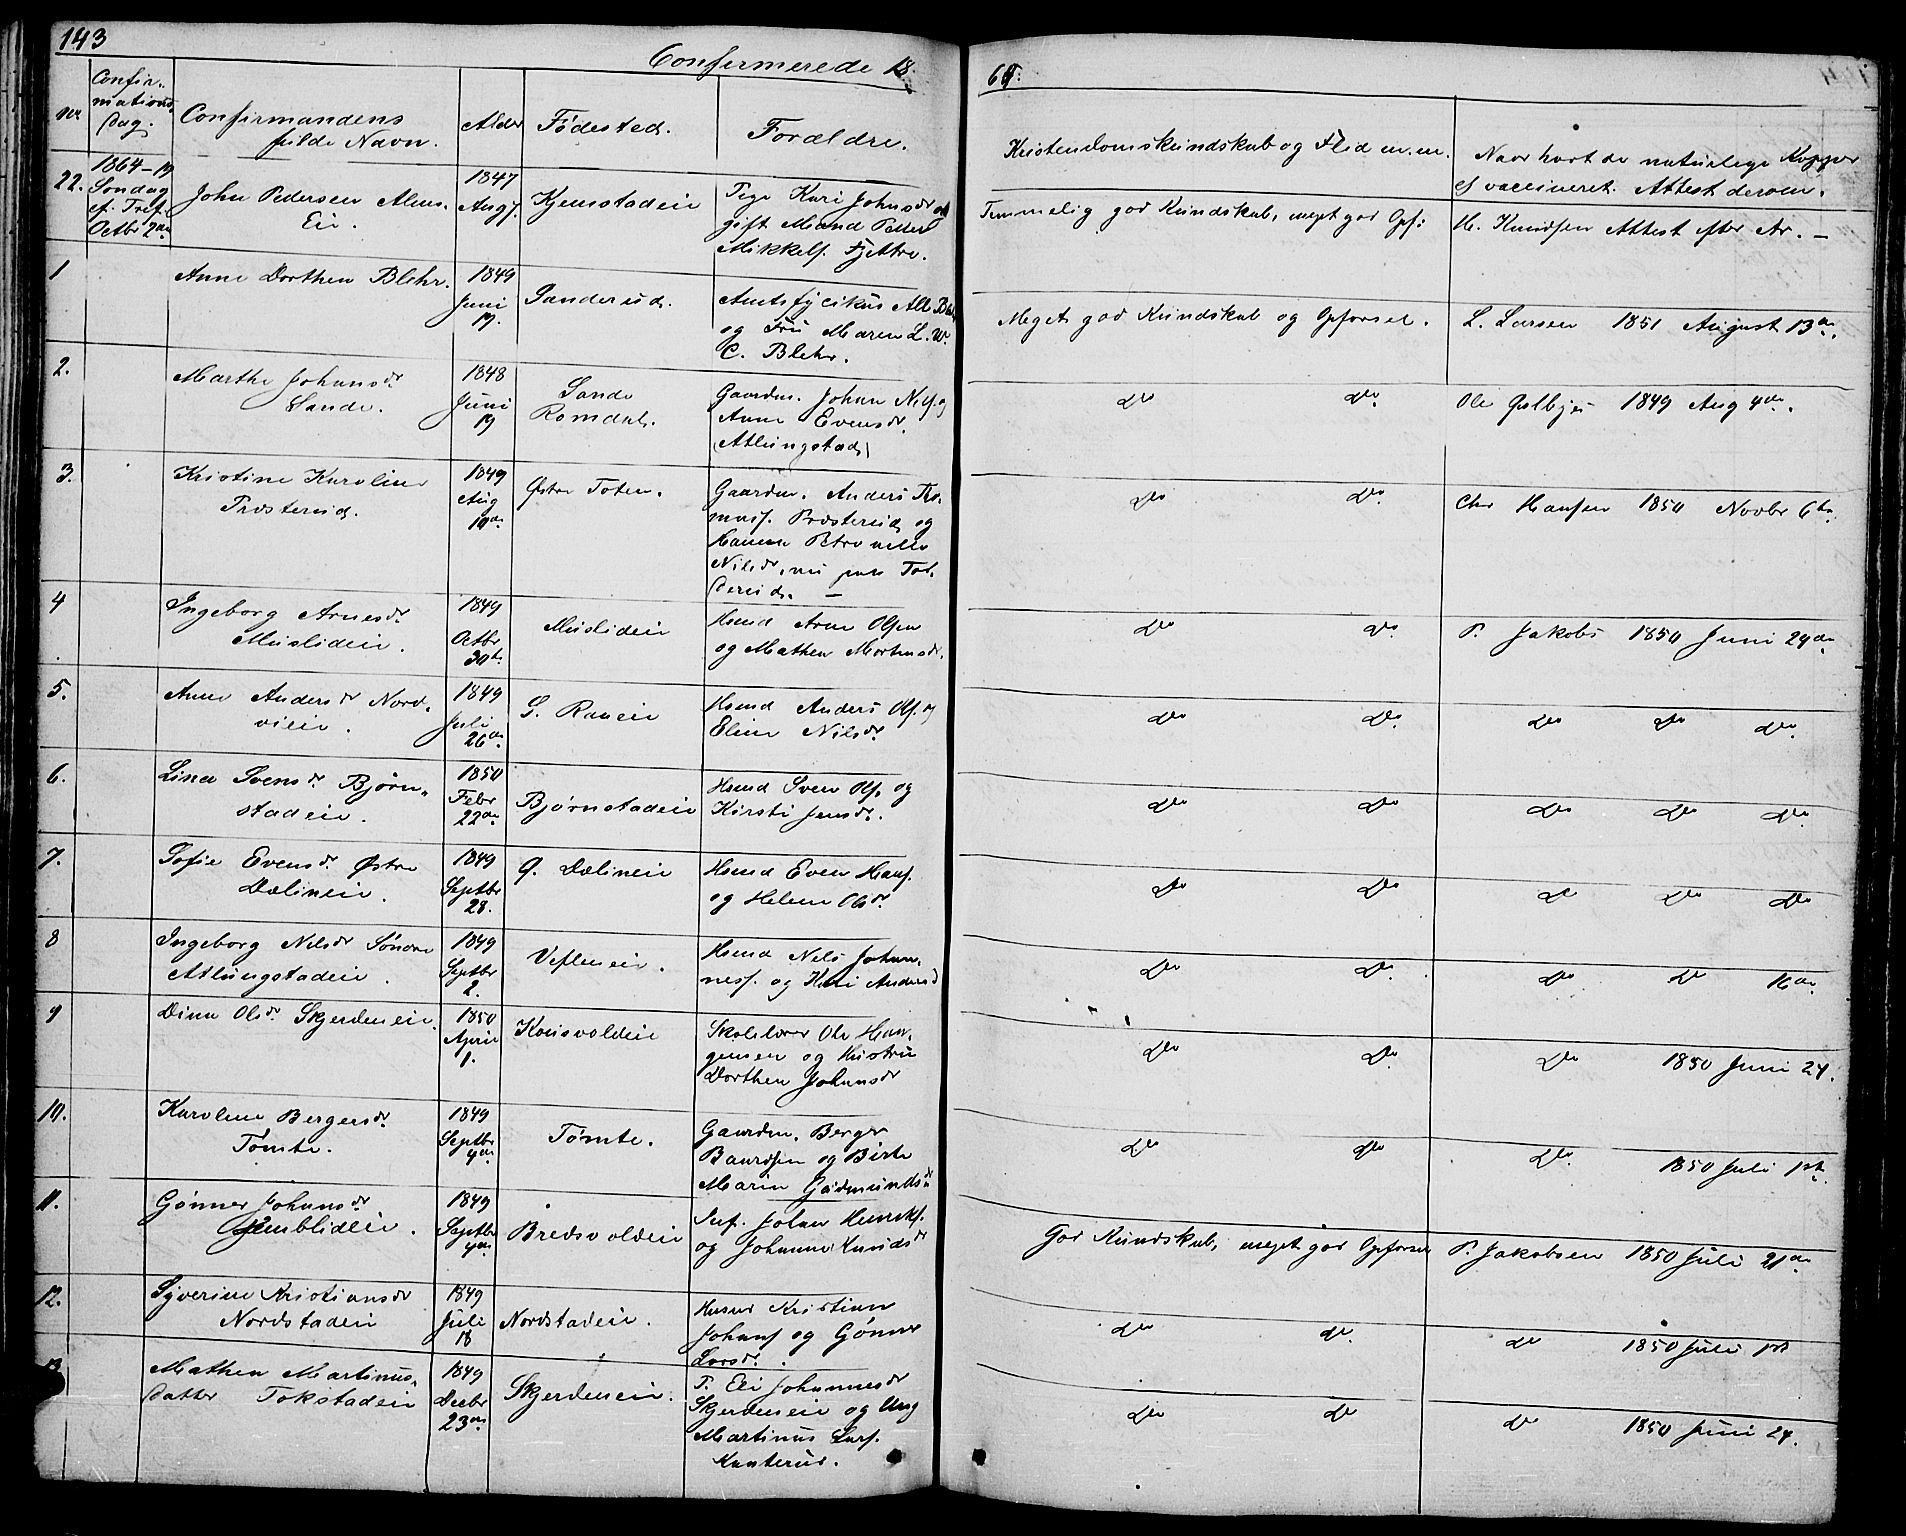 143
Confermerede 18
64.
No
Confir-
mations-
Dag.
Confirmandens
fulde Navn.
Alder
Födested.
Forældre.
Kristendomskundskab og Flid m. m.
Naar havt de naturlige Kopper
el vaccineret. Attest derom.
22.
1864 - 19
Söndag
ef. Tref.
Octbr 2den
John Pedersen Alms-
Ei.
1847
Aug
Kjemstadeie
Pige Kari Johnsdr og
gift Mand Peder
Mikkels. Fjettre.
Temmelig god Kundskab, meget god Opf:
H. Knudsen Attest efter Ar. —
1
Anne Dorthea Blehr.
1849
Juni
17.
Sanderud.
Amtsfycikus Alb. Blehr
og Fru Maren L. W.
C. Blehr.
Meget god Kundskab og Opforsel.
L. Larsen 1851 August 13de.
2.
Marthe Johansdr.
Sande.
1848
Juni
19
Sande
Romdal.
Gaardm. Johan Nils. og
Anne Evensdr.
(Atlungstad)
Do Do.
Ole Gulbjes 1849 Aug 4de.
3.
Kristine Karoline
Prøsterud.
1849
Aug
10de
Østre Toten.
Gaardm. Anders Tho-
mass. Prøsterud og
Hanna Petronelle
Nilsdr, nu paa Tol-
derud. —
Do Do.
Chr Hansen 1850 Novbr 6te.
4
Ingeborg Arnesdr.
Muslideie.
1849
Octbr
30te
Muslideie
Hsmd Arne Olsen
og Mathea Mortensdr.
Do Do.
P. Jakobs 1850 Juni 24de.
5.
Anne Andersdr Nord-
vieie.
1849
Juli
26de.
S. Raneie
Hsmd Anders Ols. og
Eline Nilsdr.
Do Do.
Do Do Do.
6.
Lina Svensdr. Bjørn-
stadeie.
1850
Febr
22de
Bjørnstadeie
Hsmd Sven Ols. og
Kirsti Jensdr.
Do Do.
Do Do Do.
7.
Sofie Evensdr. Østre
Dælineie.
1849
Septbr
28.
Ø. Dælineie
Hsmd Even Hans.
og Helene Olsdr.
Do Do.
Do Do Do.
8
Ingeborg Nilsdr Söndre
Atlungstadeie.
1849
Septbr
2.
Vefleneie.
Hsmd Nils Johan-
ness. og Kari Andersd
Do Do.
Do Do 16de.
9
Dina Olsdr. Skjerdeneie.
1850
April
1.
Konsvoldeie
Skolelærer Ole Haa-
gensen og Hustru
Dorthea Johansdr
Do Do.
Do 1850 Juni 24.
10.
Karoline Bergersdr.
Tömte.
1849
Septbr
4de.
Tömte.
Gaardm. Berger
Baardsen og Birte
Marie Gudmundsdr
Do Do.
Do. 1850 Juli 1ste.
11.
Gönner Johansdr
Jemblideie.
1849
Septbr
4de
Bredsvoldeie
Inf. Johan Henriks.
og Johanne Knudsdr
God Kundskab, meget god Opforsel
P. Jakobsen 1850 Juli 21de
12.
Syverine Kristiansdr
Nordstadeie
1849
Juli
18
Nordstadeie.
Husmd Kristian
Johans og Gönner
Larsdr.
Do do.
do 1850 Juli 1ste
13
Mathea Martinus-
datter Tokstadeie
1849
Decbr
23de.
Skjerdeneie.
P. Eli Johannesdr
Skjerdeneie og Ung
Martinus Lars.
Kanterud.
Do Do
do 1850 Juni 24.